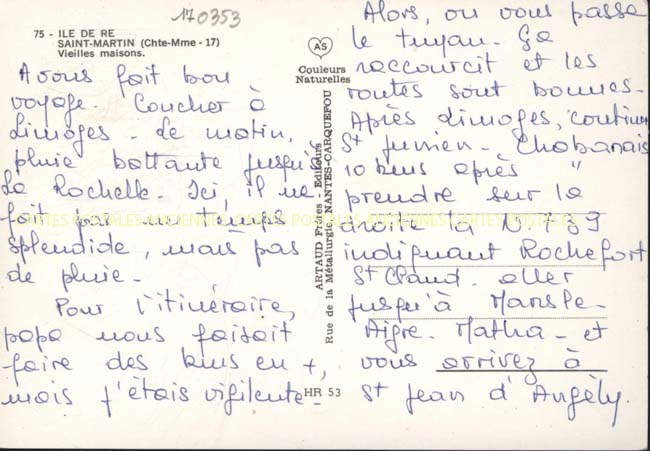 170353
75 - ILE DE RE
SAINT-MARTIN (Chte-Mme - 17)
Vieilles maisons.
Avons fait bon
voyage. Coucher à
Limoges - Le matin,
pluie battante jusqu'à
La Rochelle. Ici il ne
fait pas un temps
splendide, mais pas
de pluie -
Pour l'itinéraire,
papa nous faisait
faire des kms en +,
mais j'étais vigilente -
AS
Couleurs
Naturelles
ARTAUD Frères - Editeurs
Rue de la Métallurgie, NANTES-CARQUEFOU
HR 53
Alors, on vous passe
le tuyau. Ça
raccourcit et les
routes sont bonnes -
Après Limoges, continuer
St Junien - Chabanais
10 kms après "
prendre sur la
droite la N. 739
indiquant Rochefort
St Claud - aller
jusqu'à Mansle -
Aigre - Matha - et
vous arrivez à
St Jean d'Angély.
CARTES POSTALES ANCIENNES CARTES POSTALES ANCIENNES CARTES POSTALES